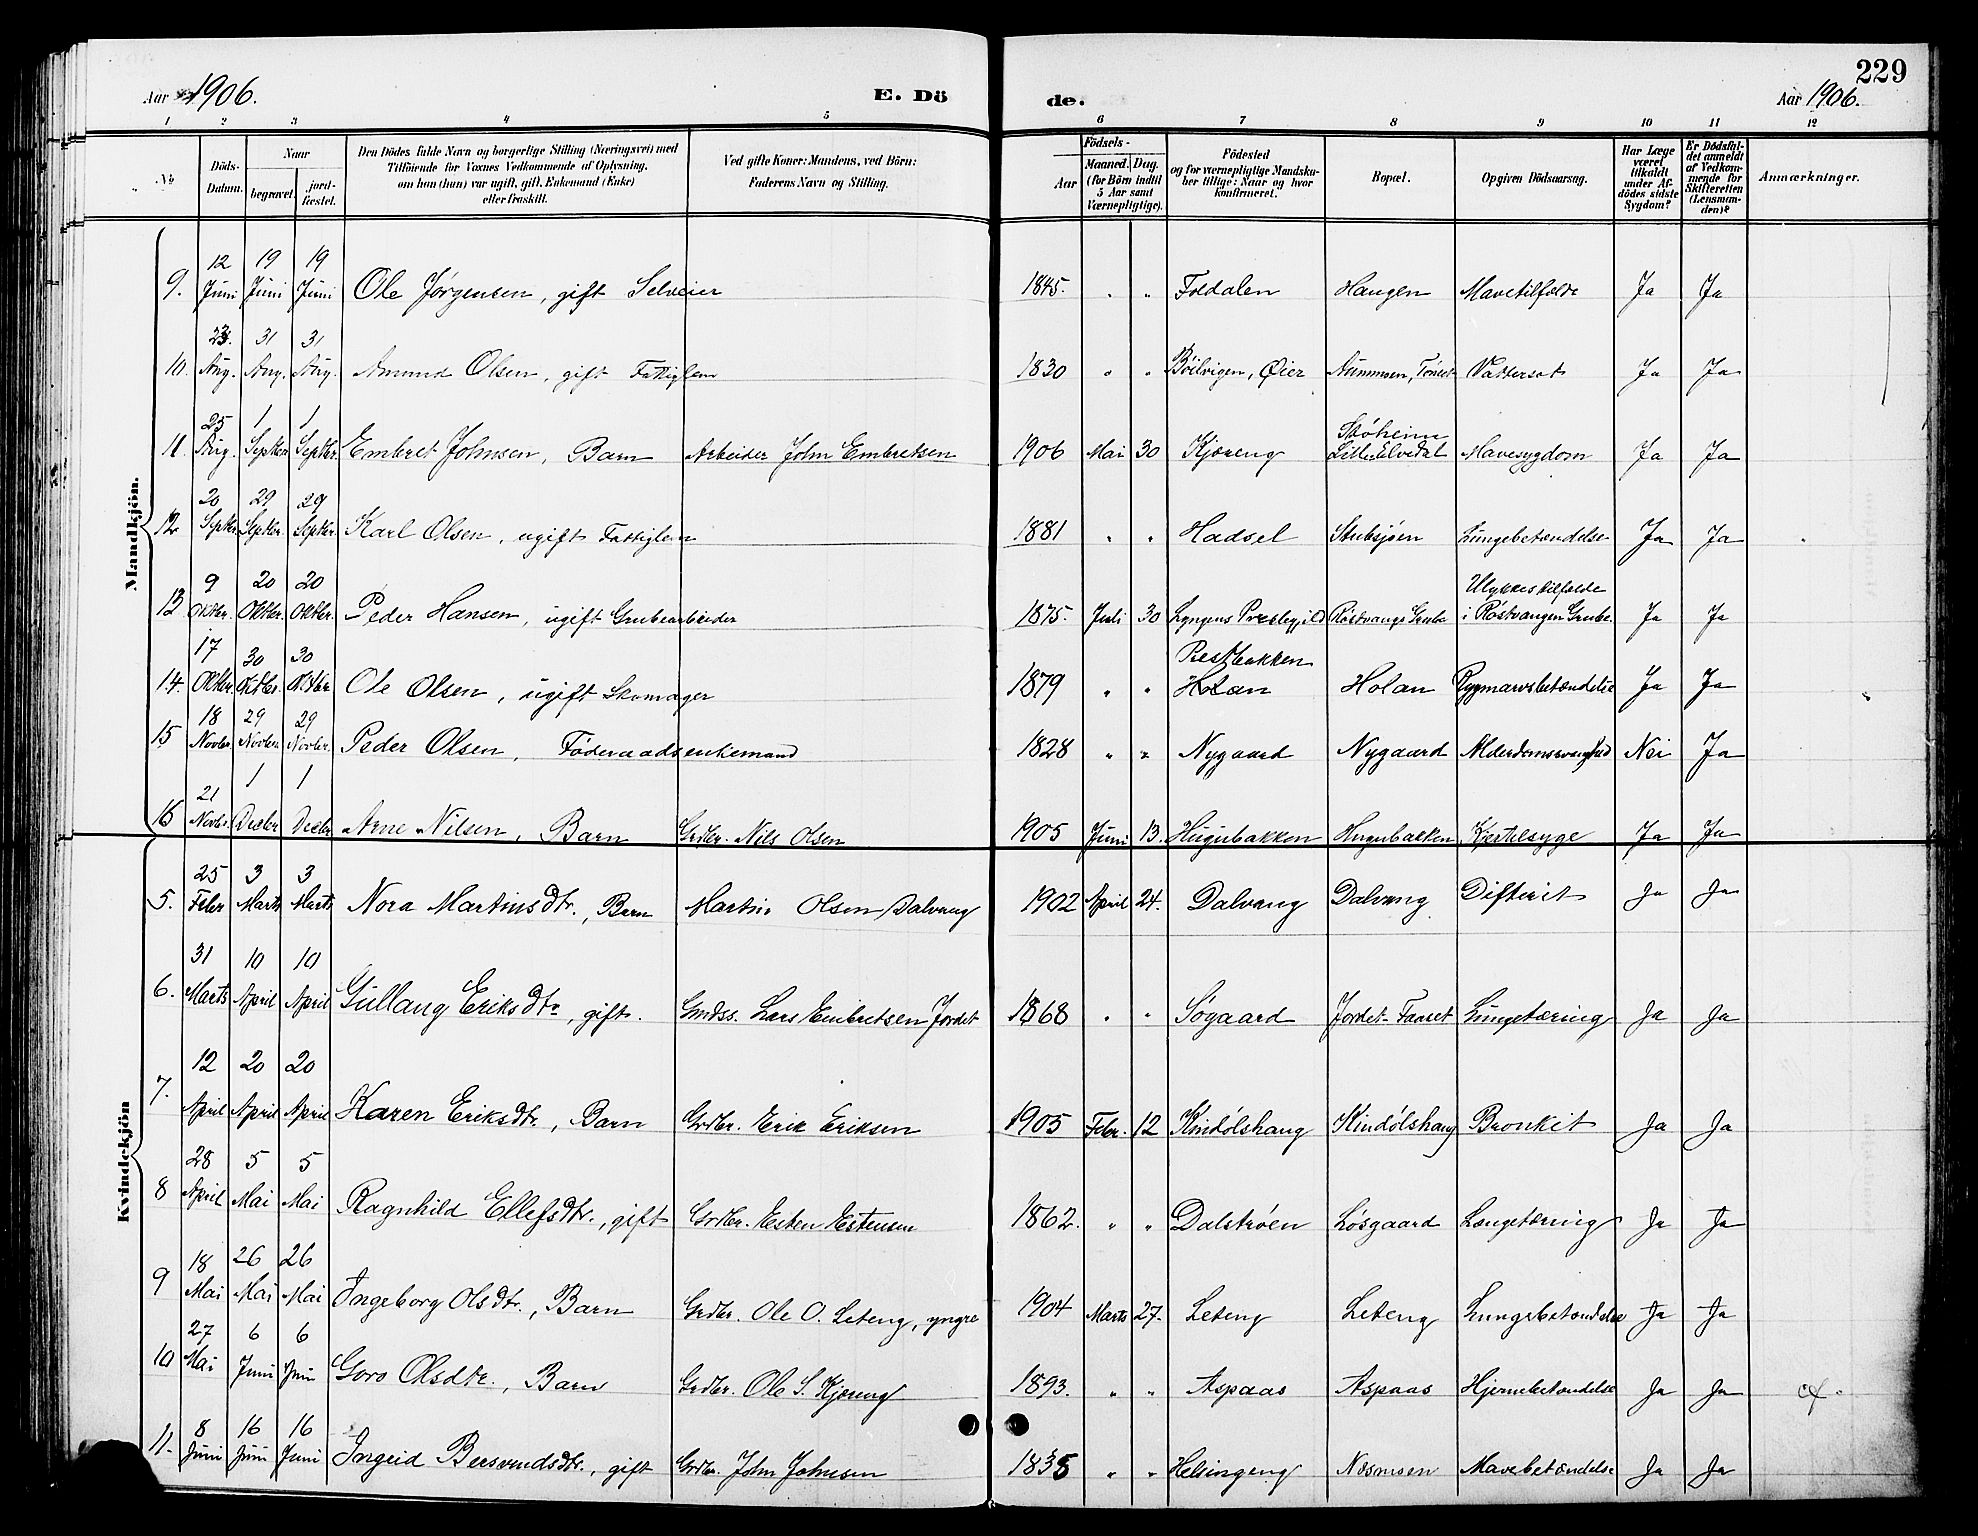 229
Aar 1906. E. Dö de. Aar 1906.
1 2 3 4 5 6 7 8 9 10 11 12
No Döds-Datum. Naar begravet jord-fæstet. Den Dödes fulde Navn og borgerlige Stilling (Næringsvei) med Tilföiende for Voxnes Vedkommende af Oplysning, om han (hun) var ugift, gift, Enkemand (Enke) eller fraskilt. Ved gifte Koner: Mandens, ved Börn: Faderens Navn og Stilling. Födsels- Aar Maaned. Dag. (for Börn indtil 5 Aar samt Værnepligtige). Födested og for værnepligtige Mandskaber tillige: Naar og hvor konfirmeret. Bopæl. Opgiven Dödsaarsag. Har Læge været tilkaldt under Afdödes sidste Sygdom? Er Dödsfaldet anmeldt af Vedkommende for Skifteretten (Lensmanden)? Anmærkninger.
Mandkjön.
9. 12 Juni 19 Juni 19 Juni Ole Jørgensen, gift Selveier 1845. " " Foldalen Haugen Mavetilfælde Ja Ja
10. 23. Aug. 31 Aug. 31 Aug. Amund Olsen, gift Fattiglem 1830 " " Øier Vattersot Ja Ja
11. 25 Aug. 1 Septbr. 1 Septbr. Embret Johnsen, Barn Arbeider John Embretsen 1906 Mai 30 Kjøreng Lille Elvedal Mavesygdom Ja Ja
12 20 Septbr. 29 Septbr. 29 Septbr. Karl Olsen, ugift Fattiglem 1881 " " Hadsel Stubsjøen Lungebetændelse Ja Ja
13 9 Oktbr. 20 Oktbr. 20 Oktbr. Peder Hansen, ugift Grubearbeider 1875. Juli 30 Lyngens Prestegjeld Røstvangs Grube Ulykkestilfælde i Røstvangen Grube. Ja Ja
14. 17 Oktbr. 30 Oktbr. 30 Oktbr. Ole Olsen, ugift Skomager 1879 " " Holan Holan Rygmarvsbetændelse Ja Ja
15 18 Novbr. 29 Novbr. 29 Novbr. Peder Olsen, Föderaadsenkemand 1828 " " Nygaard Nygaard Alderdomssvaghed Nei Ja
16 21 Novbr. 1 Decbr 1 Decbr Arne Nilsen, Barn Grdbr. Nils Olsen 1905 Juni 13. Hugubakken Hugubakken Kjertelsyge Ja Ja
Kvindekjön
5. 25 Febr 3 Marts 3 Marts Nora Martinsdtr., Barn Martin Olsen Dalvang 1902 April 24. Dalvang Dalvang Difterit Ja Ja
6. 31 Marts 10 April 10 April Gullaug Eriksdtr, gift. Lars Embretsen Jordet 1868 " " Søgaard Jordet-Faaset Lungetæring Ja Ja
7. 12 April 20 April 20 April Karen Eriksdtr., Barn Grdbr. Erik Eriksen 1905 Febr. 12 Kindølshaug Kindølshaug Bronkit Ja Ja
8 28 April 5 Mai 5 Mai Ragnhild Ellefsdtr., gift Grdbr. Esten Estensen 1862. " " Dalstrøen Løsgaard Lungetæring Ja Ja
9 18 Mai 26 Mai 26 Mai Ingeborg Olsdtr., Barn Grdbr. Ole O. Leteng, yngre 1904 Marts 27. Leteng Leteng Lungebetændelse Ja Ja
10 27 Mai 6 Juni 6 Juni Goro Olsdtr., Barn Grdbr. Ole S. Kjøreng 1893. " " Aspaas Aspaas Hjernebetændelse Ja Ja cf.
11. 8 Juni 16 Juni 16 Juni Ingeid Bersvendsdtr., gift Grdbr. John Johnsen 1835 " " Helsingeng Næsmoen Mavebetændelse Ja Ja